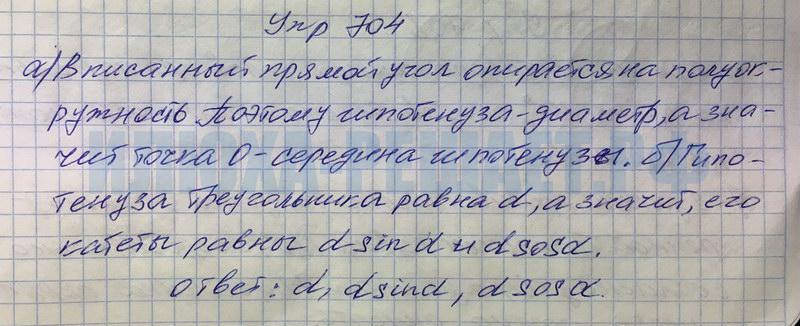 Упр 704
а) Вписанный прямой угол опирается на полуок-
ружность. Поэтому гипотенуза - диаметр, а зна-
чит точка O - середина гипотенузы. б) Гипо-
тенуза треугольника равна d, а значит, его
катеты равны d sin α и d sosα.
ответ: d, d sin α, d sosα.